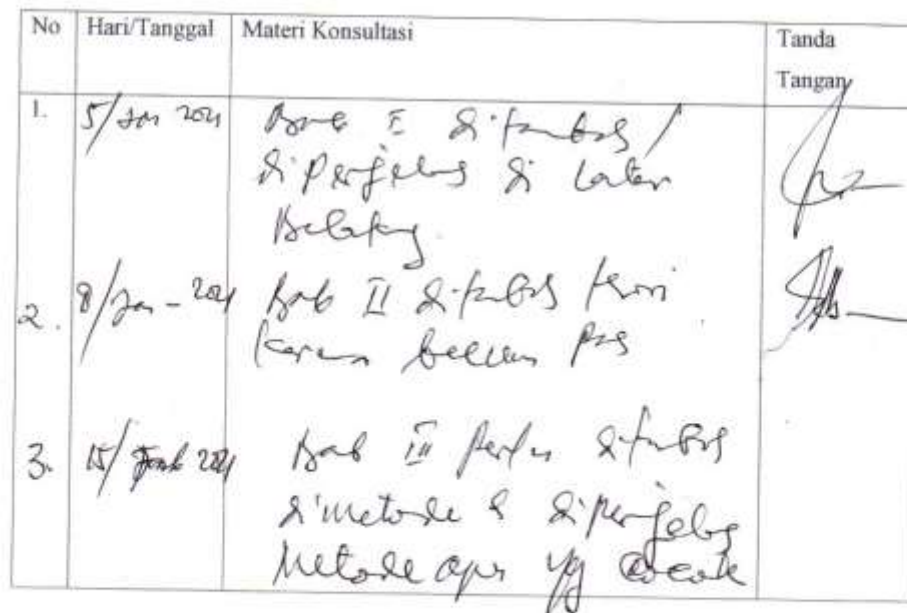 No Hari/Tanggal Materi Konsultasi Tanda
Tangan
1. 5/Jan 2021 Bab I ditambah /
diperjelas di Latar
Belakang.
2. 8/Jan - 2021 Bab II ditambah teori
karena belum pas
3. 15/ 2021 Bab III perlu ditambah
dimetode & diperjelas
Metode apa yg cocok